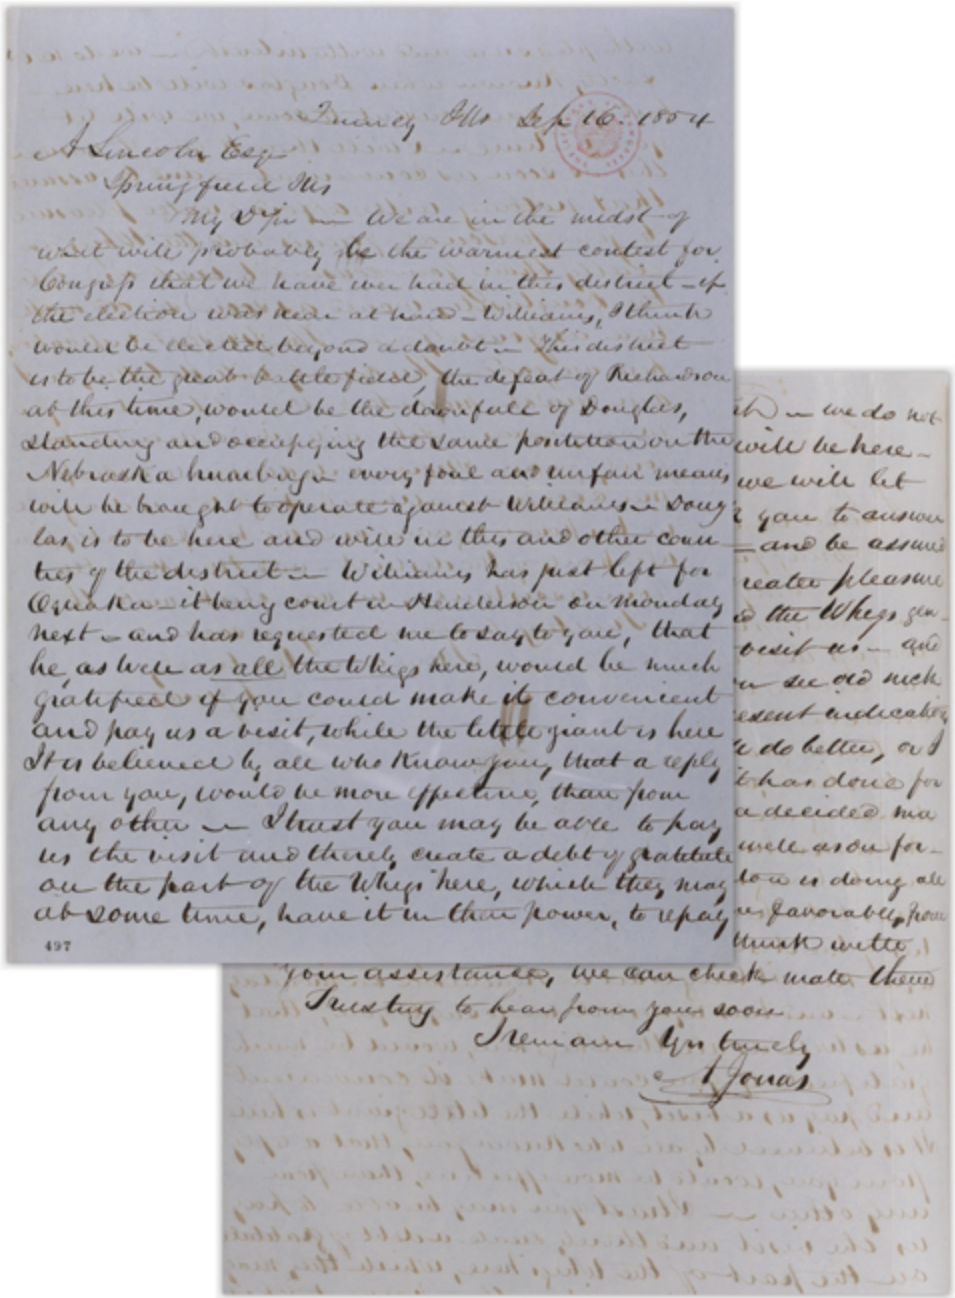 Quincy Ills Sep 16. 1854
A Lincoln Esqr
Springfield Ills
My D Sir — We are in the midst of
what will probably be the warmest contest for
Congress that we have ever had in this district – if
the election was near at hand – Williams, I think
would be elected beyond a doubt – This district
is to be the great battle field, the defeat of Richardson
at this time, would be the downfall of Douglas,
standing and occupying the same position on the
Nebraska humbug – every foul and unfair means
will be brought to operate against Williams – Doug
las is to be here and will in this and other coun
ties of the district – Williams has just left for
Oquaka – it being court in Henderson on Monday
next – and has requested me to say to you, that
he, as well as all the Whigs here, would be much
gratified if you could make it convenient
and pay us a visit, while the little giant is here
It is believed by all who know you, that a reply
from you, would be more effective, than from
any other — I trust you may be able to pay
us the visit and thereby create a debt of gratitude
on the part of the Whigs here, which they may
at some time, have it in their power, to repay
497
– we do not
will be here –
we will let
you to answer
– and be assured
reater pleasure
the Whigs gen-
visit us – and
see old nick
esent indications
do better, or I
t has done for
a decided ma
well as on for-
is doing all
favorably, from
think with
Your assistance, we can check mate them
Trusting to hear from you soon
I remain Yrs truly
A Jonas